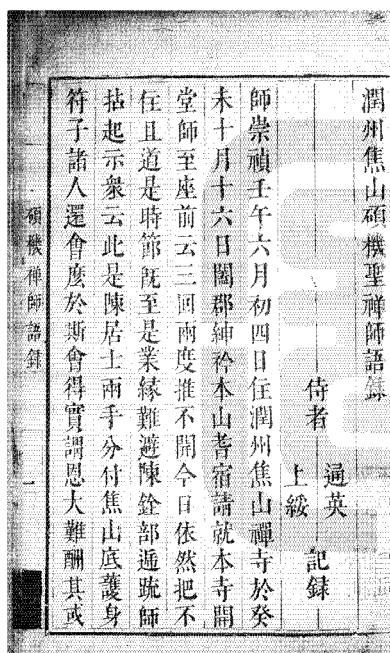 潤州焦山碩機聖禪師語錄
侍者 通英 上綏 記錄
師崇禎壬午六月初四日住潤州焦山禪寺於癸
未十月十六日闔郡紳衿本山耆宿請就本寺開
堂師至座前云三回兩度推不開今日依然把不
住且道是時節既至是業緣難避陳銓部遞疏師
拈起示衆云此是陳居士兩手分付焦山底護身
符子諸人還會麼於斯會得實謂恩大難酬其或
碩機禪師語錄 一